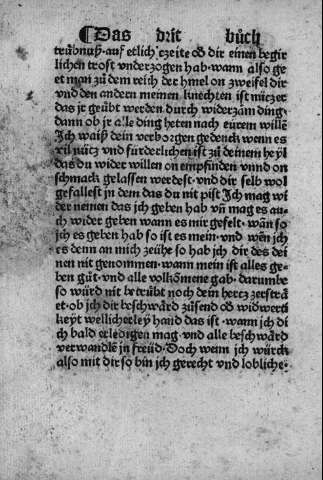 ¶Das drit bůch
trůbnuß·auf etlich czeite od dir einen begir
lichen trost vnderzogen hab·wann also ge
et man zů dem reich der hmel on zweifel dir
vnd den andern meinen knechten ist nüczer
das ir geůbt werden durch widerzäm ding·
dann ob ir alle ding heten nach eürem willē
Ich waiß dein verborgen gedenck wenn es
vil nůtz vnd fürderlichen ist zů deinem heyl
das du wider willen on empfinden vnnd on
schmack gelassen werdest·vnd dir selb wol
gefallest in dem das du nit pist Ich mag wi
der nemen das ich geben hab vn̄ mag es au
ch wider geben wann es mir gefelt·wān so
ich es geben hab so ist es mein·vnd wen̄ ich
es denn an mich zeühe so hab ich dir des dei
nen nit genommen·wann mein ist alles ge-
ben gůt·vnd alle volkōmene gab·darumbe
so würd nit betrübt noch dein hercz zersträ
et·ob ich dir beschwärd züsend od widwerti
keyt wellicherley hand das ist·wann ich di
ch bald erledigen mag·vnd alle beschwärd
verwandlē in freüd·Doch wenn ich würck
also mit dir so bin ich gerecht vnd lobliche-